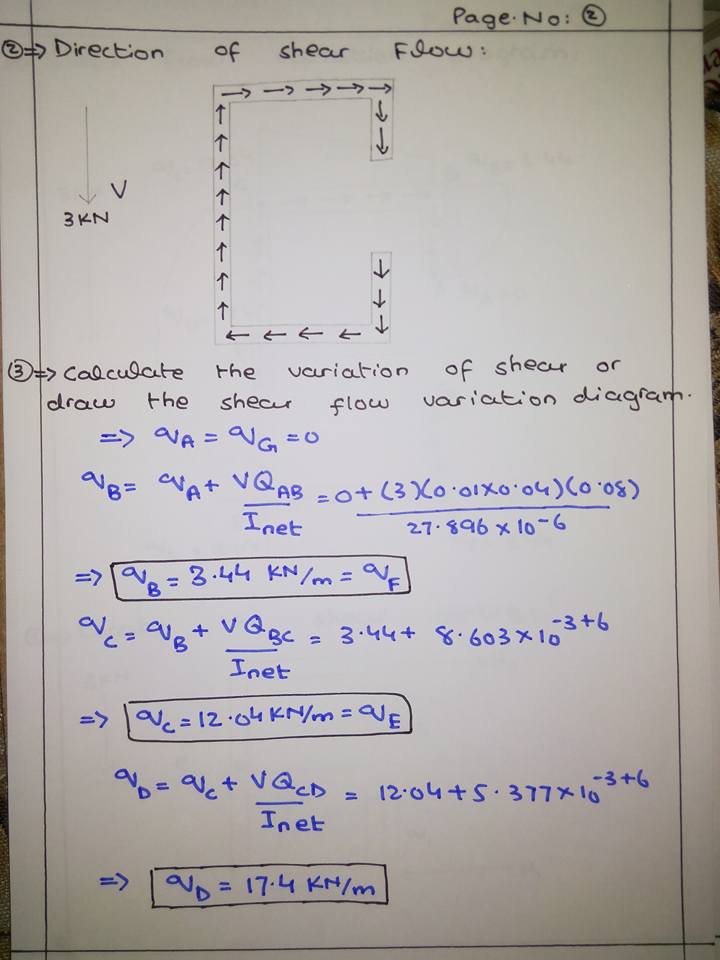 Page. No: ②
②⇒ Direction of shear Flow:
V
3 KN
③⇒ Calculate the variation of shear or
draw the shear flow variation diagram.
⇒ q_A = q_G = 0
q_B = q_A + VQ_AB / I_net = 0 + (3)(0.01×0.04)(0.08) / 27.896 × 10^-6
⇒ q_B = 3.44 KN/m = q_F
q_C = q_B + VQ_BC / I_net = 3.44 + 8.603 × 10^-3+6
⇒ q_C = 12.04 KN/m = q_E
q_D = q_C + VQ_CD / I_net = 12.04 + 5.377 × 10^-3+6
⇒ q_D = 17.4 KN/m